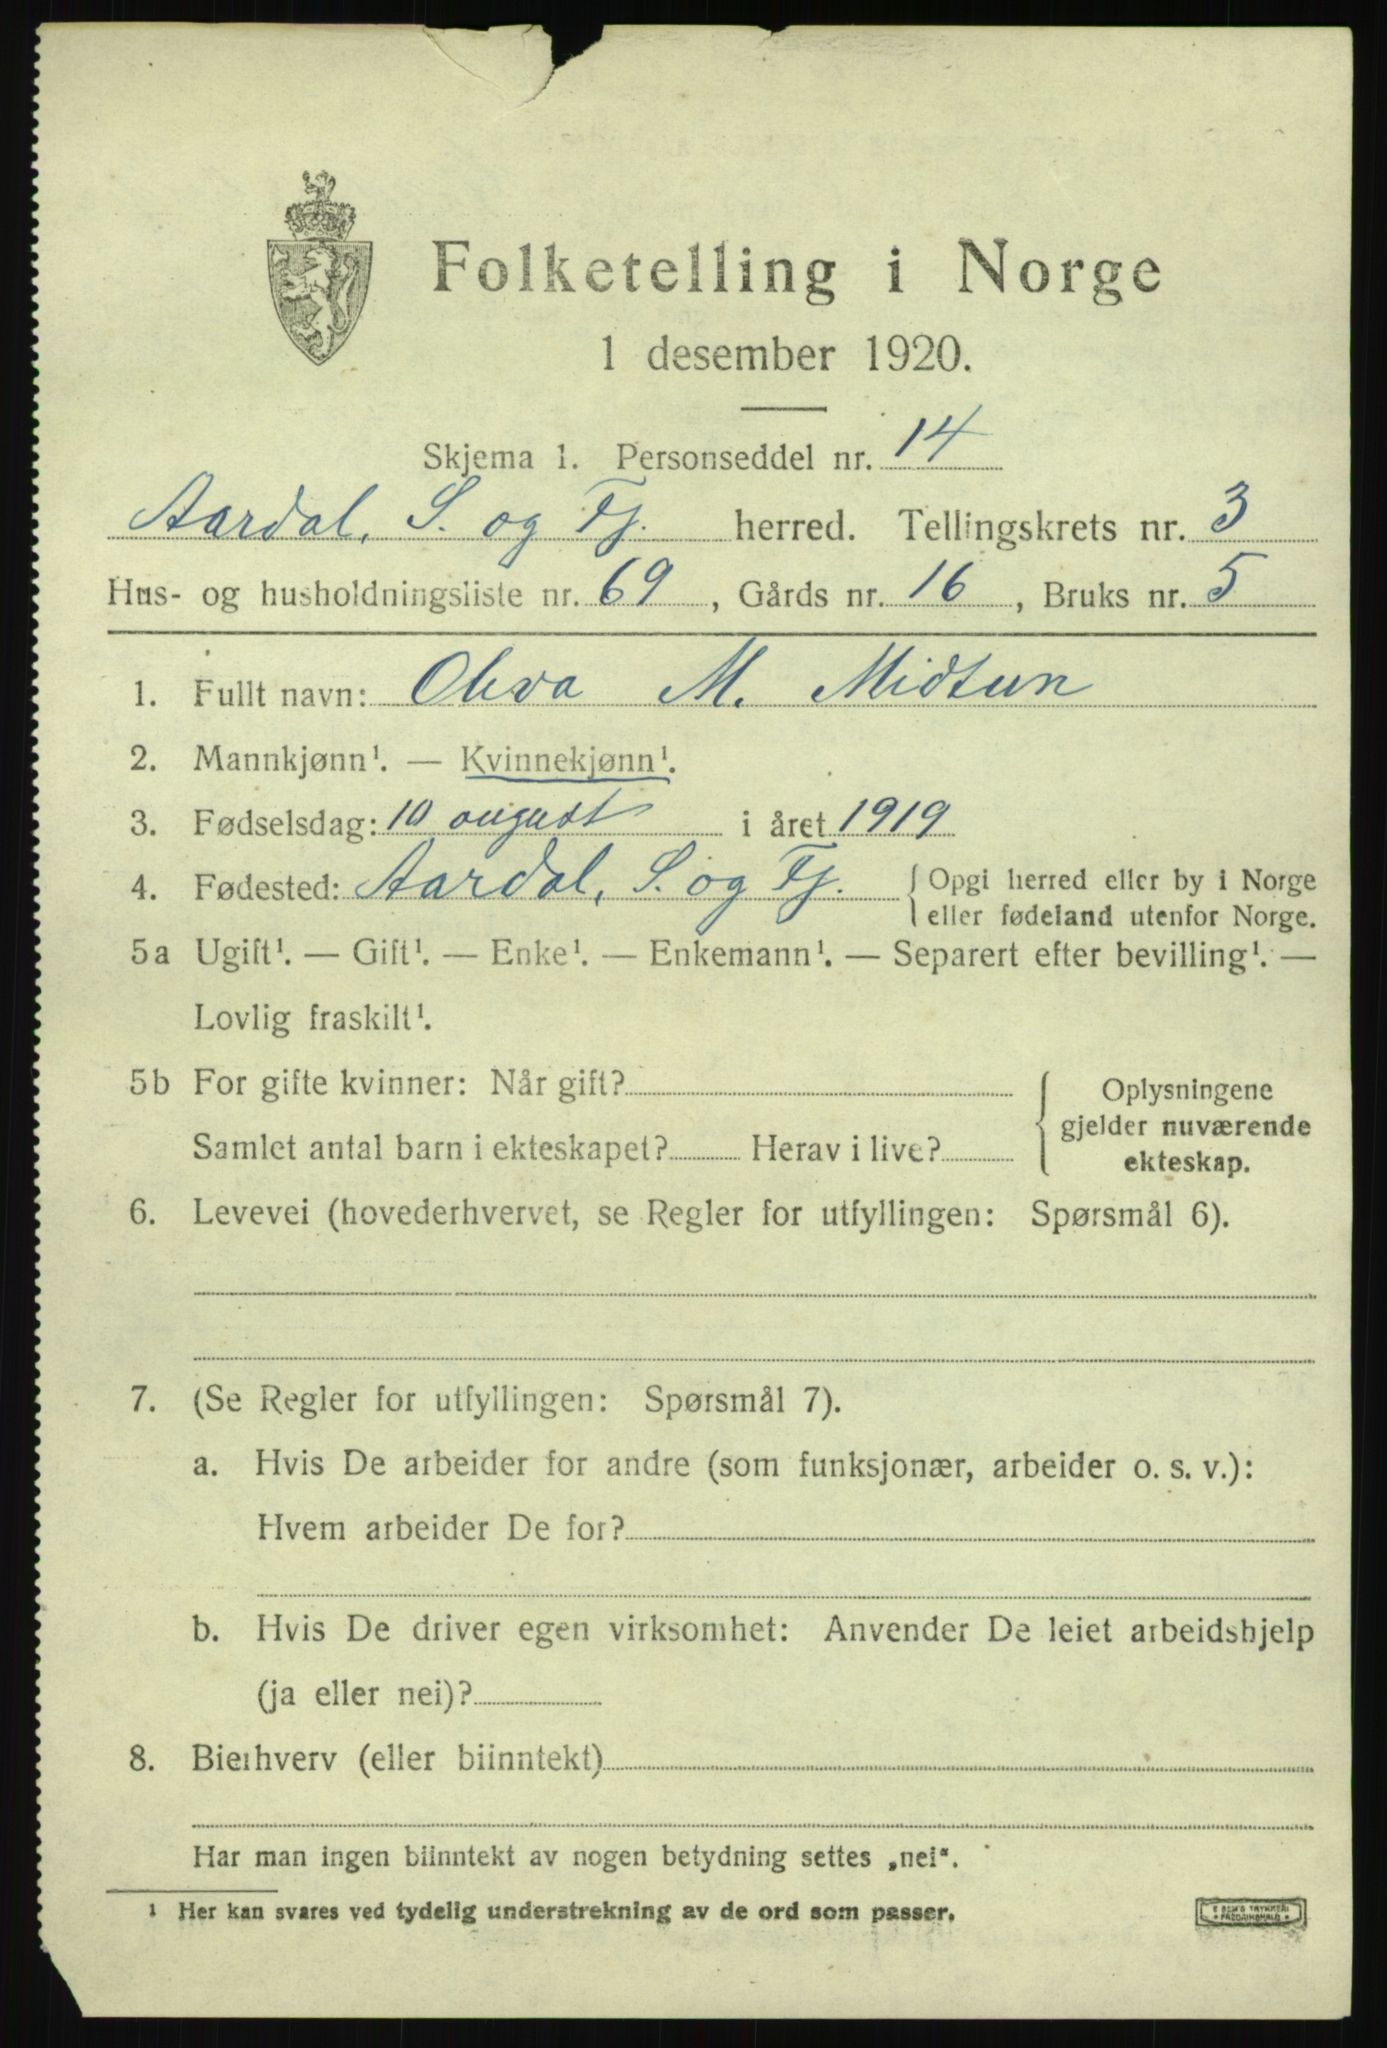 Folketelling i Norge
1 desember 1920.
Skjema 1. Personseddel nr. 14
Aardal, S. og Fj. herred. Tellingskrets nr. 3
Hus- og husholdningsliste nr. 69, Gårds nr. 16, Bruks nr. 5
1. Fullt navn: M. Midtun
2. Mannkjønn¹. — Kvinnekjønn¹.
3. Fødselsdag: 10 august i året 1919
4. Fødested: Aardal, S. og Fj. { Opgi herred eller by i Norge
eller fødeland utenfor Norge.
5a Ugift¹. — Gift¹. — Enke¹. — Enkemann¹. — Separert efter bevilling¹. —
Lovlig fraskilt¹.
5b For gifte kvinner: Når gift? { Oplysningene
gjelder nuværende
Samlet antal barn i ekteskapet? Herav i live? ekteskap.
6. Levevei (hovederhvervet, se Regler for utfyllingen: Spørsmål 6).
7. (Se Regler for utfyllingen: Spørsmål 7).
a. Hvis De arbeider for andre (som funksjonær, arbeider o. s. v.):
Hvem arbeider De for?
b. Hvis De driver egen virksomhet: Anvender De leiet arbeidshjelp
(ja eller nei)?
8. Bierhverv (eller biinntekt)
Har man ingen biinntekt av nogen betydning settes „nei“.
¹ Her kan svares ved tydelig understrekning av de ord som passer.